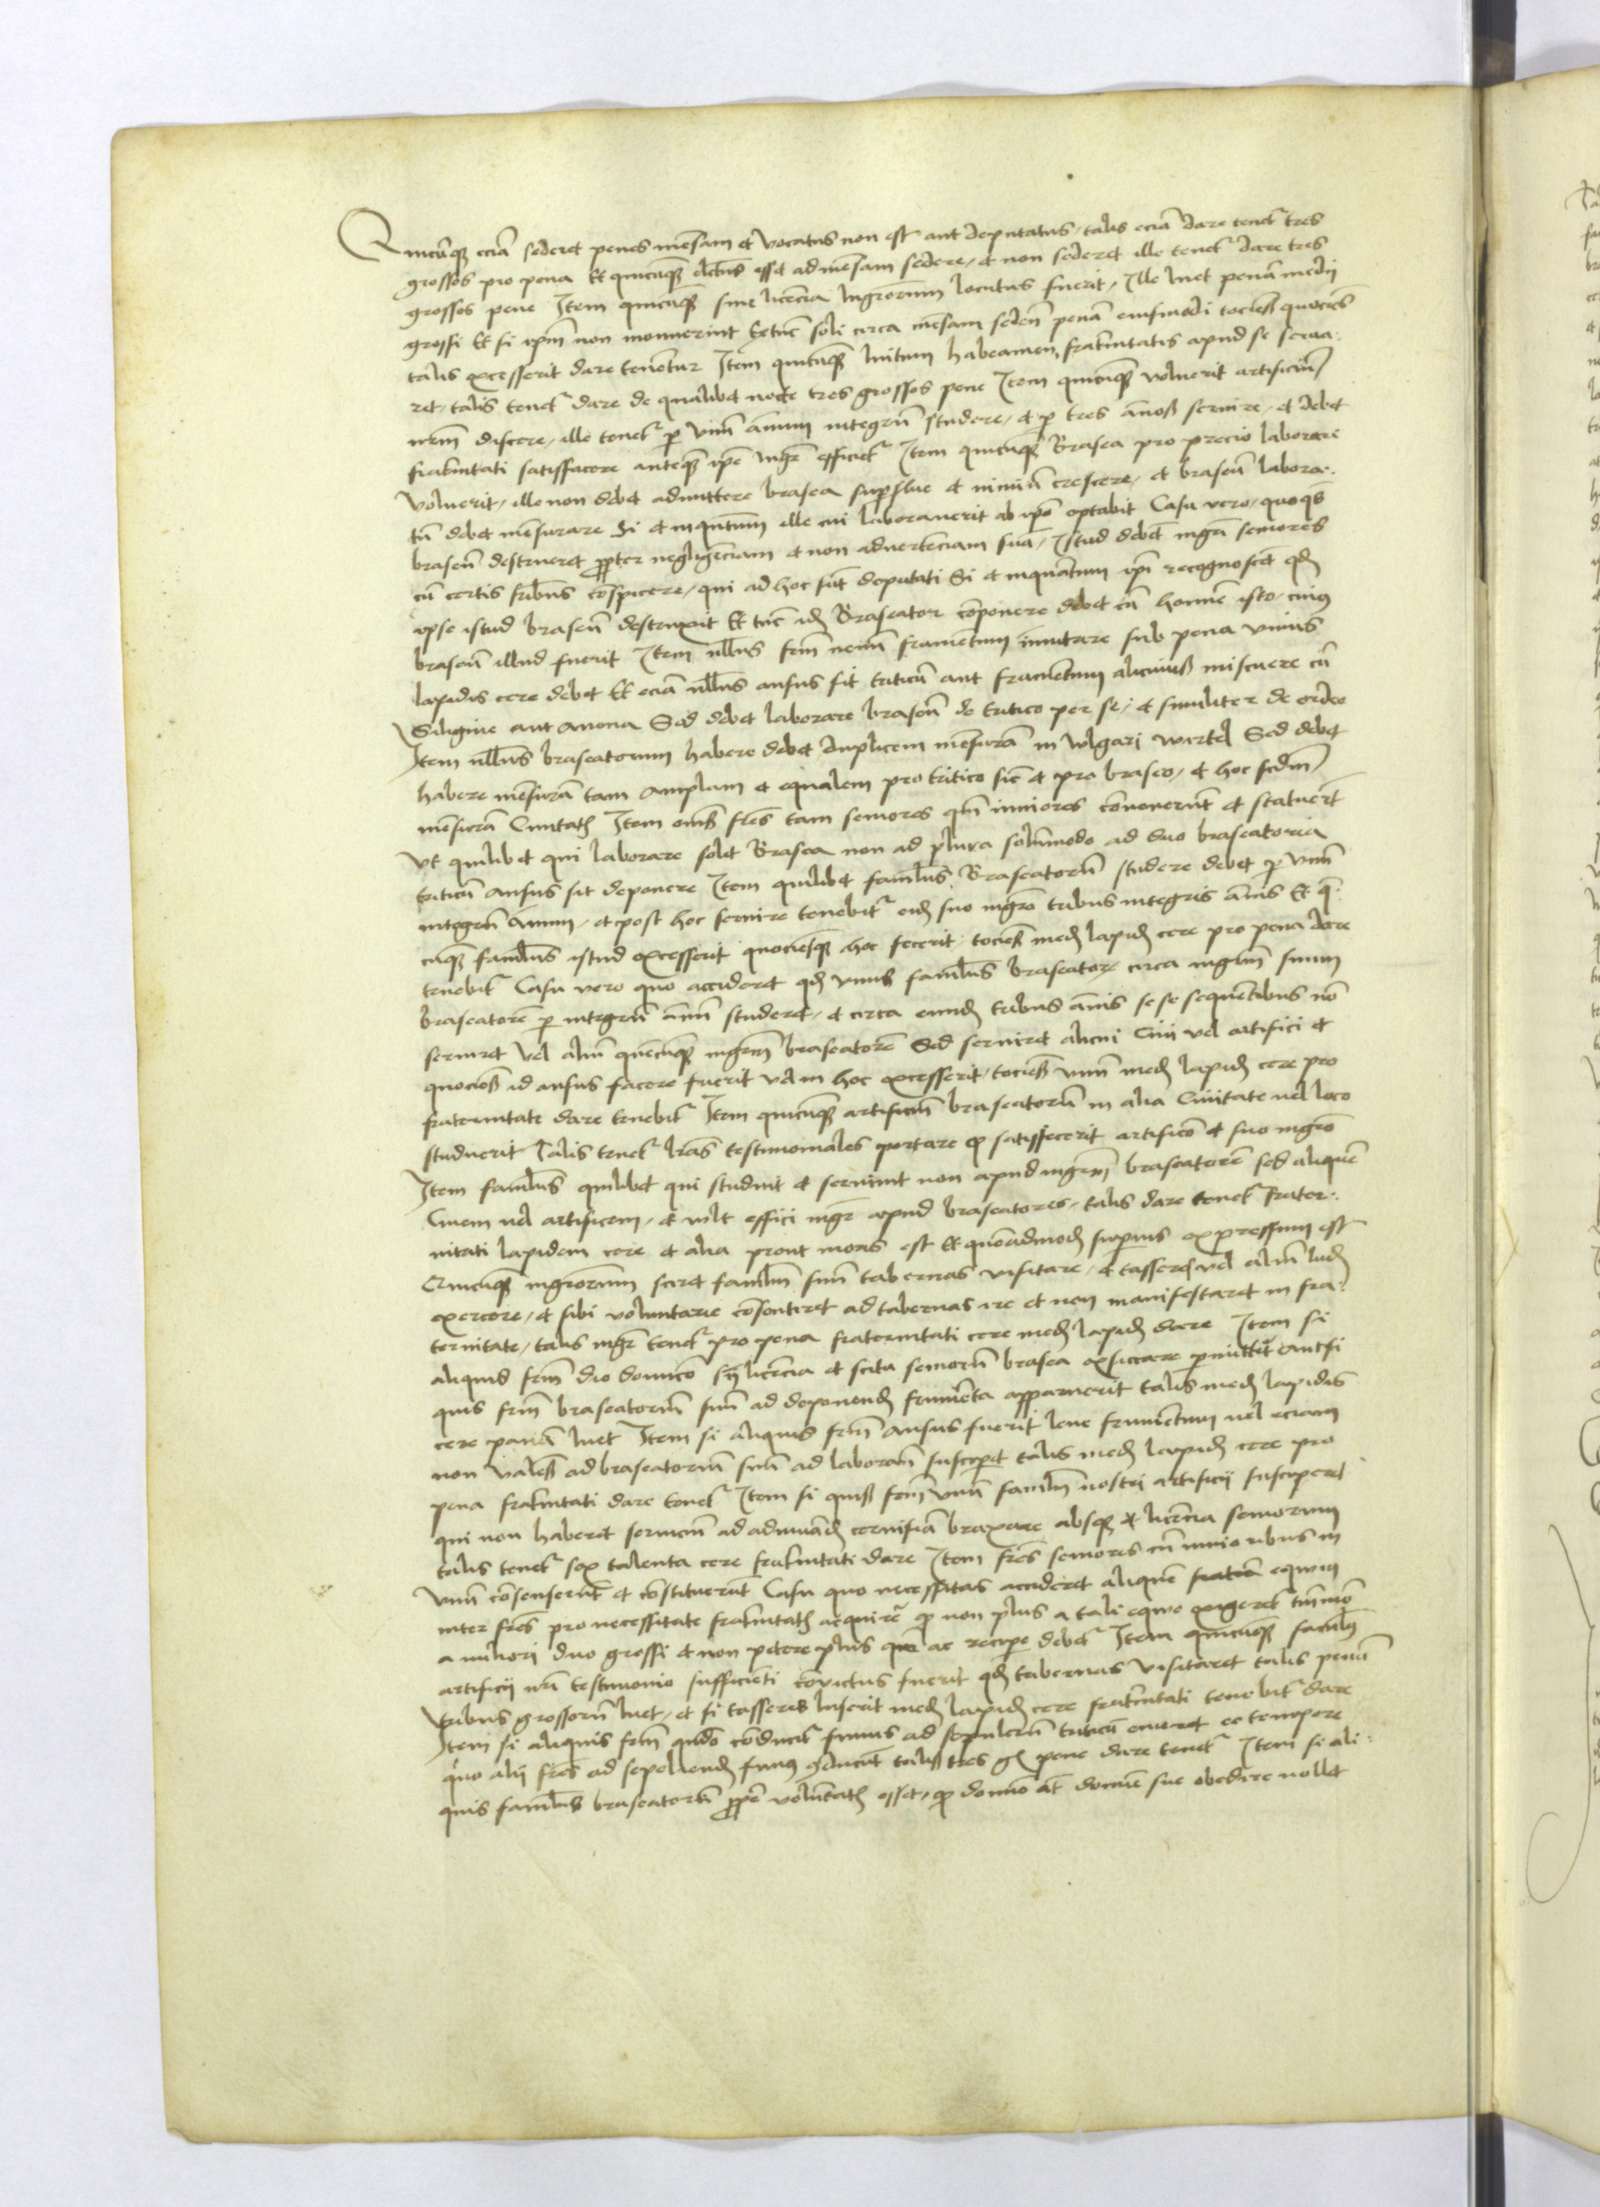 Quicūqꝫ eciā sederet penes mēsam et vocatus non est aut deputatus, talis eciā dare tenet᷑ tres
grossos pro pena Et quicūqꝫ electus esset ad mēsam sedere, et non sederet ille tenet᷑ dare tres
grossos pene Item quicūqꝫ sine licēcia mgrorum locutus fuerit, Ille luet penā medii
grossi Et si ipm̄ non monuerint Extūc soli circa mēsam seden̄ penā eiusmodi tociēs quociēs
talis excesserit dare tenētur Item quicūqꝫ fratrnitatis apud se serua-
ret, talis tenet᷑ dare de qualibet nocte tres grossos pene Item quicūqꝫ voluerit artificiū
nr̄m discere, ille tenet᷑ p vnū annum integrū studere, et p tres ānos seruire, et debet
frat᷑nitati satisfacere anteqꝫ ipe mgr̄ efficiet᷑ Item quicūqꝫ Brasea pro precio laborare
voluerit, ille non debet admittere brasea supflue et nimiū crescere, et braseū labora-
tū debet mēsurare Si et inqntum ille cui laborauerit ab ipo optabit Casu vero, quo qs
braseū destrueret ppter negligēciam et non aduertenciam suā, Istud debet mgr̄i seniores
cū certis fribus cōspicere, qui ad hoc sūt deputati Si et inquantum ipi recognoscēt qd
ipse istud braseū destruxit Ex tūc idē Braseator cōponere debet cū homīe isto, cuius
braseū illud fuerit Item nllus frm̄ nemini frumētum īmutare sub pena vnius
lapidis cere debet Et eciā nllus ausus sit triticū aut frumētum alicuius miscuere cū
Siligine aut Auena Sed debet laborare braseū de tritico per se, et similiter de ordeo
Item nllus braseatorum habere debet duplicem mēsurā in wlgari wertel Sed debet
habere mēsurā tam amplam et equalem pro tritico sic et pro braseo, et hoc scdm
mēsurā Ciuitatis Item oms fr̄es tam seniores qm̄ iuniores cōuenerūt et statuerūt
Vt quilibet qui laborare solet Brasea non ad plura solūmodo ad duo braseatoria
triticū ausus sit deponere Item quilibet famlus Braseatorū studere debet p vnū
integrū annum, et post hoc seruire tenebit᷑ eidē suo mgro tribus integris annis Et qi-
cūqꝫ famlus istud excesserit quociēsqꝫ hoc fecerit, tociēs mediū lapidē cere pro pena dare
tenebit᷑ Casu vero quo accideret qd vnus famlus braseator circa mgrm̄ suum
braseatorē p integrū annū studeret, et circa eundē tribus annis se se sequētibus nō
seruiret vel aliū quēcūqꝫ mgrm̄ braseatorē Sed seruiret alicui Ciui vel artifici et
quociēs id ausus facere fuerit vel in hoc excesserit, tociēs vnū mediū lapidē cere pro
fraternitate dare tenebit᷑ Item quicūqꝫ artificiū braseatorū in alia Ciuitate vel loco
studuerit Talis tenet᷑ lras testimoniales portare qd satisfecerit artificio et suo mgro
Item famlus quilibet qui studuit et seruiuit non apud mgrm̄ braseatorē sed aliquē
Ciuem vel artificem, et vult effici mgr̄ apud braseatores, talis dare tenet᷑ frater-
nitati lapidem cere et alia prout moris est Et quēadmodū supius expressum est
Quicūqꝫ mgrorum sciret famlm̄ suū tabernas visitare, et tasseres vel aliū ludū
exercere, et sibi voluntarie cōsentiret ad tabernas ire et non manifestaret in fra-
ternitate, talis mgr̄ tenet᷑ pro pena fraternitati cere mediū lapidē dare Item si
aliquis frm̄ die dominico sn̄ licēcia et scitu seniorū brasea exsiccare pmittit aut si
quis frm̄ braseatoriū suū ad deponendū frumēta apparuerit talis mediū lapidis
cere penā luet Item si aliquis frm̄ ausus fuerit leue frumentum vel eciam
non valēs ad braseatoriū suū ad laborandū suscipet talis mediū lapidē cere pro
pena frat᷑nitati dare tenet᷑ Item si quis frm̄ vnū famlm̄ nostri artificii susciperet
qui non haberet seruiciū ad adiuuādū ceruisiā braxare absqꝫ licēcia seniorum
talis tenet᷑ sex talenta cere frat᷑nitati dare Item fr̄es seniores cū iunioribus in
vnū cōsenserūt et cōstituerūt Casu quo necessitas accideret aliquē equum
inter fr̄es pro necessitate frat᷑nitatis acquirere qd non plus a tali equo exigeret tm̄mō
a miliari duo grossi et non petere plus ac recipe debet᷑ Item quicūqꝫ famlus
artificii nr̄i testimonio sufficiēti cōuictus fuerit qd tabernas visitaret talis penā
tribus grossorū luet, et si tasseres luserit mediū lapidē cere frat᷑nitati tenebit᷑ dare
Item si aliquis frm̄ qndo cōducit᷑ funus ad sepulcrum triticū eo tempore
quo alii fr̄es ad sepeliendū funus cōducūt talis tres gͦ pene dare tenet᷑ Item si ali-
quis famlus braseatorū ppe volūtatis esset, qd domino aut domīe sue obedire nollet